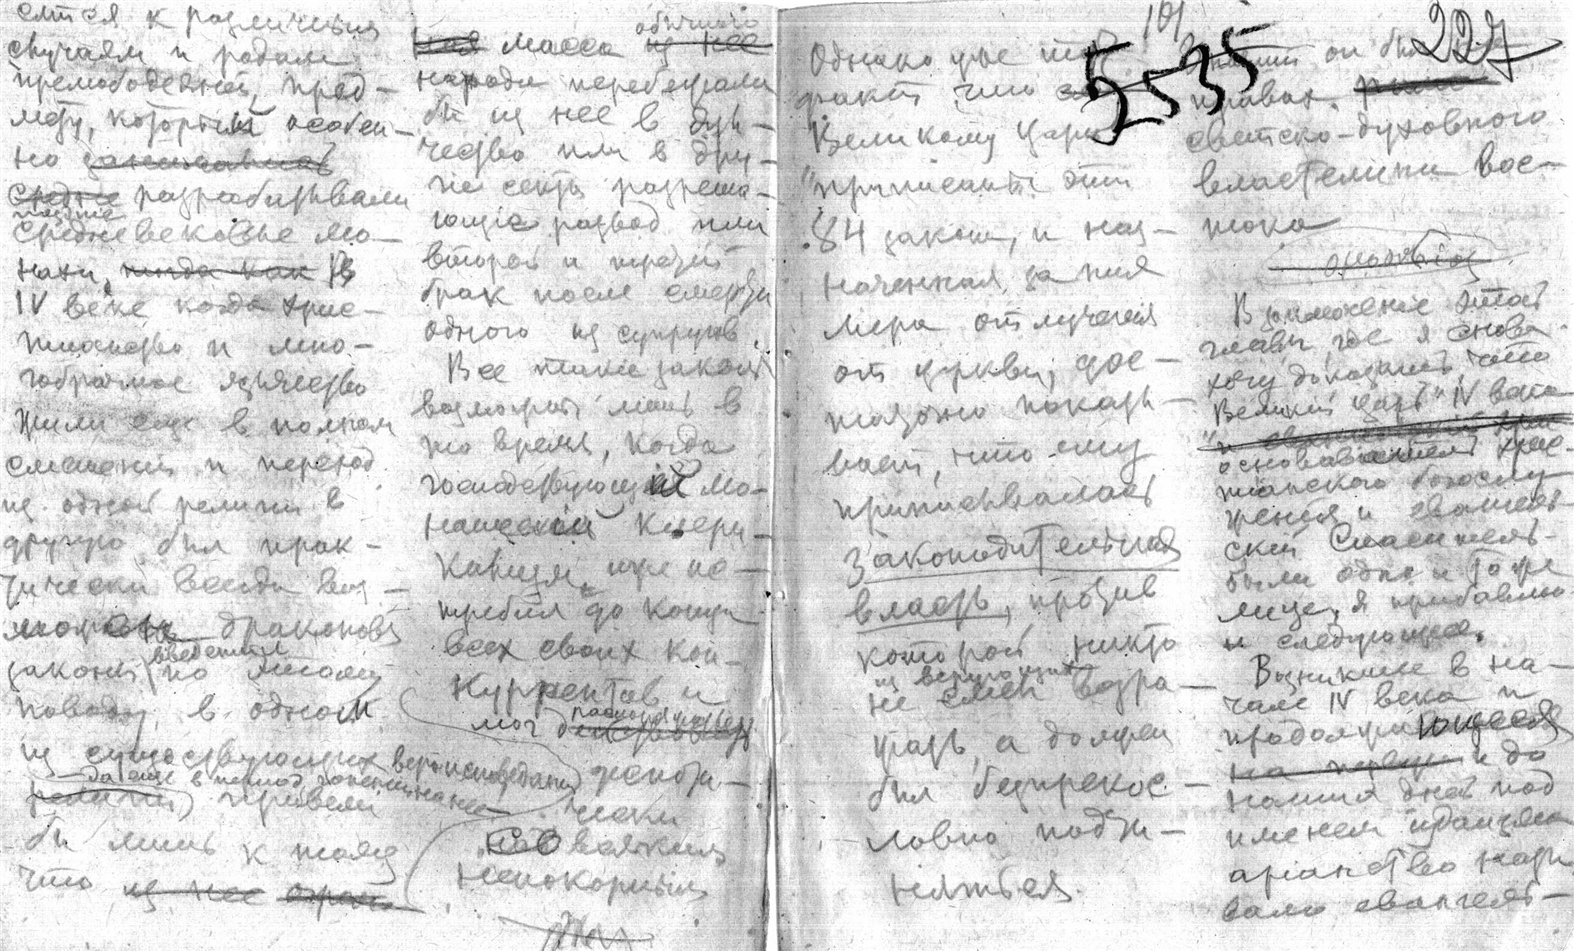 ется к различным
случаям и родам
прелюбодеяний, пред-
мету, который особен-
но занимались
средне разрабатывали
поздние
средневековые мо-
нахи, тогда как В
IV веке когда хрис-
тианство и мно-
гобрачное язычество
жили еще в полном
смешении и переход
из одной религии в
другую был прак-
тически всегда воз-
можен драконовы
введения
законы по такому
поводу, в одном
из существующих вероисповеданий
да еще в период гонения на нее
религий привели
бы лишь к тому
что из нее
обычного
ная масса из нее
народа перебегала
бы из нее в языч-
чество или в дру-
гие секты разреша-
ющие развод или
второй и третий
брак после смерти
одного из супругов.
Все такие законы
возможны лишь в
то время, когда
господствующий мо-
нашеский клери-
кализм уже ис-
требил до конца
всех своих кон-
куррентов и
мог
деспоти-
чески
со всяким
непокорным
101
5535
227
Однако уже
факт что
Великому Царю
приписаны эти
84 закона, и наз-
наченная за них
мера отлучения
от церкви, дос-
таточно показы-
вает, что ему
приписывалась
законодательная
власть, против
которой никто
из верующих
не смел возра-
жать, а должен
был беспрекос-
ловно подчи-
няться.
он был
правах
светско-духовного
властелина Вос-
тока
В заключение этой
главы, где я снова
хочу доказать, что
"Великий царь" IV века
основатель хрис-
тианского богослу-
жения и евангель-
ский Спаситель
были одно и то же
лицо, я прибавлю
и следующее.
Возникшее в на-
чале IV века и
продолжающееся
и до
наших дней под
именем
арианство назы-
вало евангель-